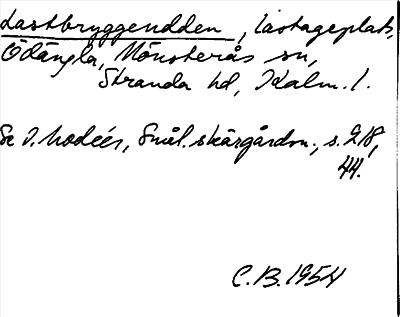 Lastbryggeudden, lastageplats,
Ödängla, Mönsterås sn,
Stranda hd, Kalm. l.
Se I. Modéer, Smål. skärgårdsn., s. 218,
44.
C.B. 1954